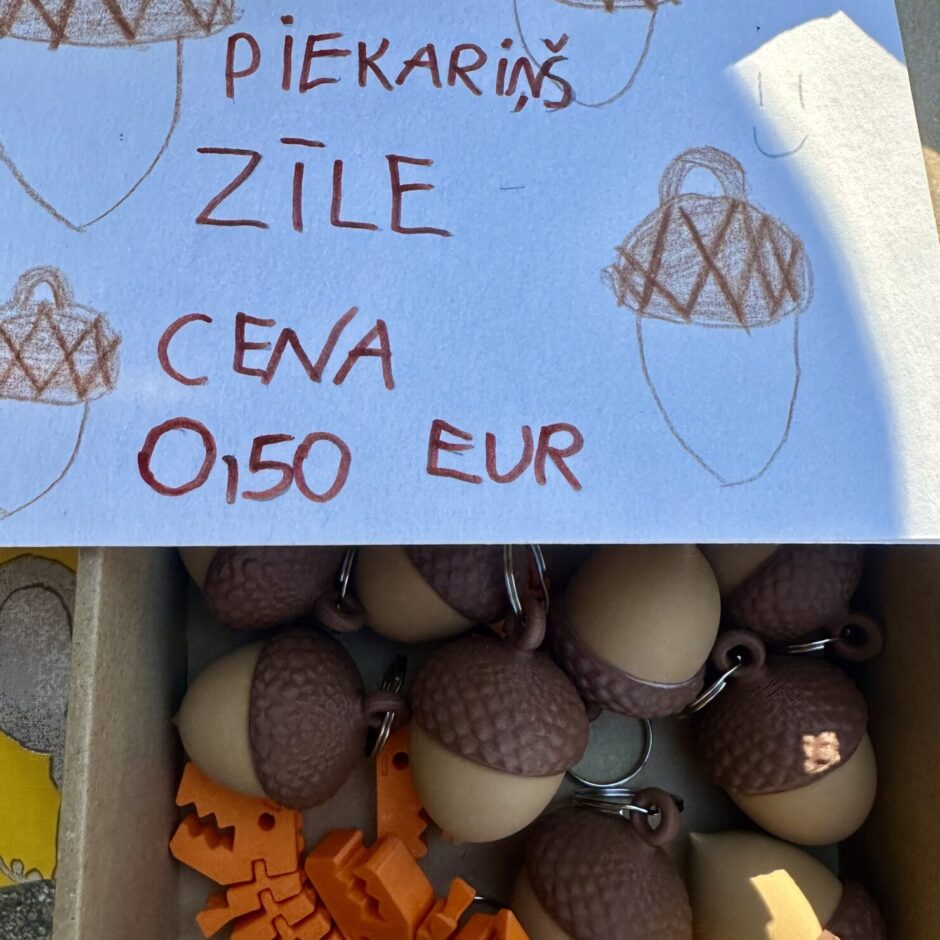 PIEKARIŅŠ
ZĪLE
CENA
0,50 EUR